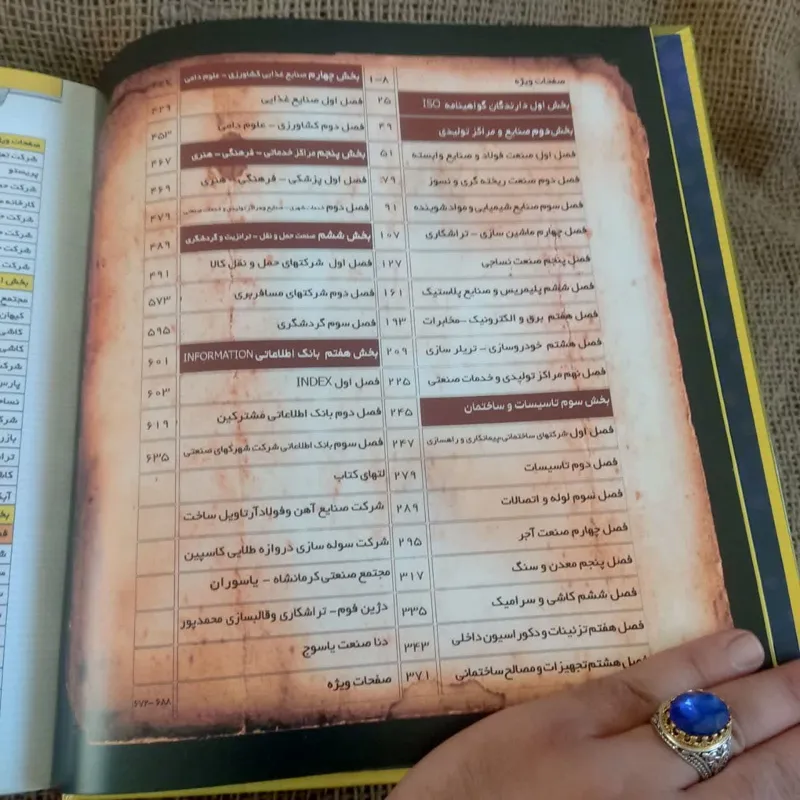 صفحات ویژه ۸-۱
بخش اول دارندگان گواهینامه ISO ۲۵
بخش دوم صنایع و مراکز تولیدی ۴۹
فصل اول صنعت فولاد و صنایع وابسته ۵۱
فصل دوم صنعت ریخته گری و نسوز ۷۹
فصل سوم صنایع شیمیایی و مواد شوینده ۹۱
فصل چهارم ماشین سازی - تراشکاری ۱۰۷
فصل پنجم صنعت نساجی ۱۲۷
فصل ششم پلیمریس و صنایع پلاستیک ۱۶۱
فصل هفتم برق و الکترونیک -مخابرات ۱۹۳
فصل هشتم خودروسازی - تریلر سازی ۲۰۹
فصل نهم مراکز تولیدی و خدمات صنعتی ۲۲۵
بخش سوم تاسیسات و ساختمان ۲۴۵
فصل اول شرکتهای ساختمانی،پیمانکاری و راهسازی ۲۴۷
فصل دوم تاسیسات ۲۷۹
فصل سوم لوله و اتصالات ۲۸۹
فصل چهارم صنعت آجر ۲۹۵
فصل پنجم معدن و سنگ ۳۱۷
فصل ششم کاشی و سرامیک ۳۳۵
فصل هفتم تزئینات و دکوراسیون داخلی ۳۴۳
فصل هشتم تجهیزات و مصالح ساختمانی ۳۷۱
بخش چهارم صنایع غذایی کشاورزی - علوم دامی
فصل اول صنایع غذایی ۴۲۹
فصل دوم کشاورزی - علوم دامی ۴۵۳
بخش پنجم مراکز خدماتی - فرهنگی - هنری ۴۶۷
فصل اول پزشکی - فرهنگی - هنری ۴۶۹
فصل دوم ۴۷۹
بخش ششم صنعت حمل و نقل - ترانزیت و گردشگری ۴۸۹
فصل اول شرکتهای حمل و نقل کالا ۴۹۱
فصل دوم شرکتهای مسافربری ۵۷۳
فصل سوم گردشگری ۵۹۵
بخش هفتم بانک اطلاعاتی INFORMATION ۶۰۱
فصل اول INDEX ۶۰۳
فصل دوم بانک اطلاعاتی مشترکین ۶۱۹
فصل سوم بانک اطلاعاتی شرکت شهرکهای صنعتی ۶۳۵
لتهای کتاب
شرکت صنایع آهن وفولادآرتاویل ساخت
شرکت سوله سازی دروازه طلایی کاسپین
مجتمع صنعتی کرمانشاه - یاسوران
دژین فوم- تراشکاری وقالبسازی محمدپور
دنا صنعت یاسوج
صفحات ویژه ۶۸۸-۶۷۲